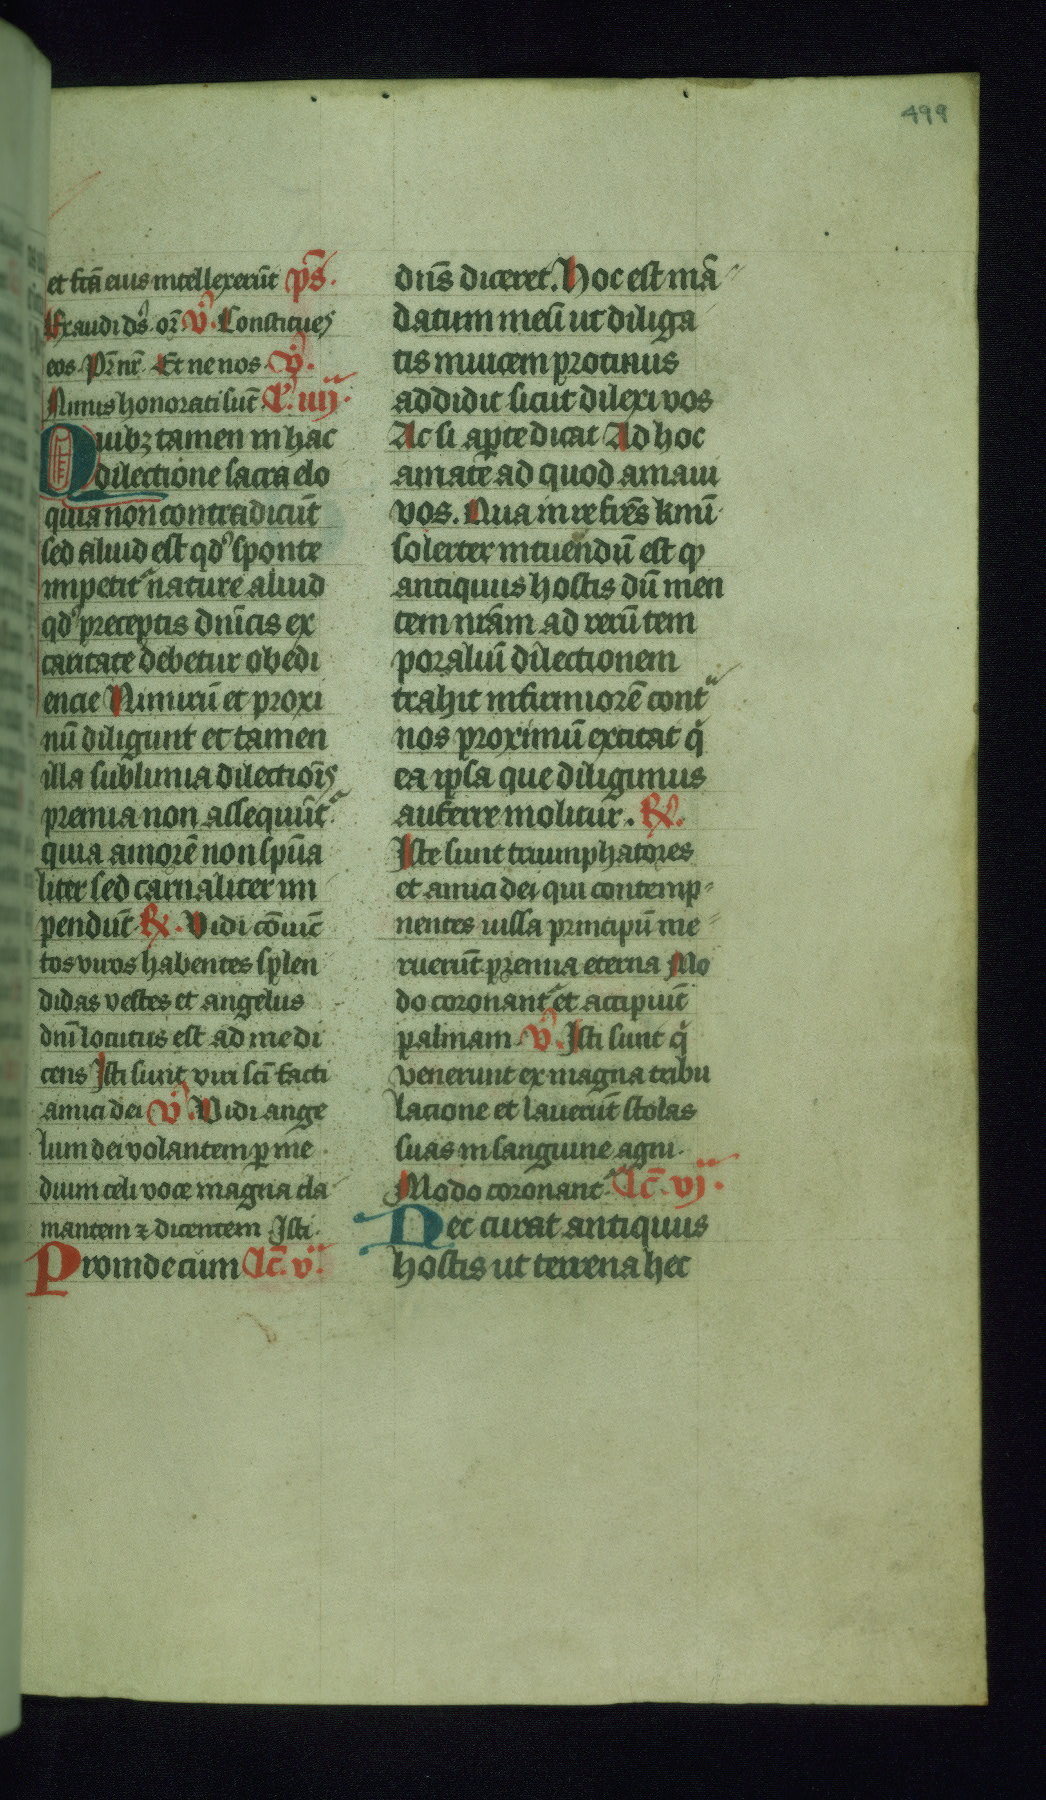 499
et fcā eius intellexerūt ps̄.
Exaudi ds̄ orō V̊. Constitues
eos Pr̄ nr̄ Et ne nos V̊.
Nimis honorati sūt Lc̄. iiij.
Quibꝫ tamen in hac
dilectione sacra elo
quia non contradicūt
sed aliud est qd' sponte
impetit᷑ nature aliud
qd' preceptis dn̄icis ex
caritate debetur obedi
encie Nimirū et proxi
mū diligunt et tamen
illa sublimia dilectiōis
premia non assequūt᷑
quia amorē non spūa
liter sed carnaliter im
pendūt R̷. Vidi cōiūc
tos viros habentes splen
didas vestes et angelus
dn̄i locutus est ad me di
cens Isti sunt viri scī facti
amici dei V̊. Vidi ange
lum dei volantem ꝑ me
dium celi voce magna cla
mantem ⁊ dicentem Isti.
Proinde cum Lc̄. v.
dn̄s diceret. Hoc est mā
datum meū ut diliga
tis inuicem protinus
addidit sicut dilexi vos
Ac si aꝑte dicat Ad hoc
amate ad quod amaui
vos. Qua in re frēs kmī
solerter intuendū est ꝙ
antiquus hostis dū men
tem nrām ad rerū tem
poraliū dilectionem
trahit infirmiorē contͣ
nos proximū excitat q̇
ea ipsa que diligimus
auferre molitur. R̷.
Iste sunt triumphatores
et amici dei qui contemp
nentes iussa principū me
ruerūt premia eterna Mo
do coronant᷑ et accipiūt
palmam V̊. Isti sunt q̇
venerunt ex magna tribu
lacione et lauerūt stolas
suas in sanguine agni.
Modo coronant᷑ Lc̄. vj.
Nec curat antiquus
hostis ut terrena hec